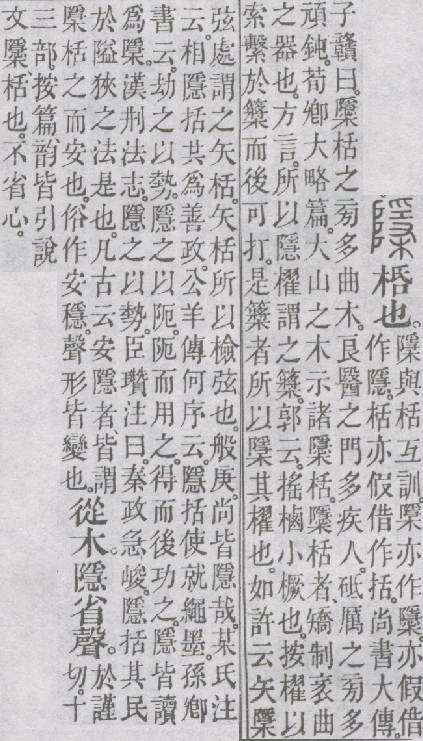 栝也。
檃與栝互訓。檃亦作櫽。亦叚借
作隱。栝亦叚借作括。尚書大傳。
子贛曰。櫽栝之㫄多曲木。良醫之門多疾人。砥厲之㫄多
頑鈍。荀卿大略篇。大山之木示諸櫽栝。櫽栝者。矯制衺曲
之器也。方言。所以隱櫂謂之䉁。郭云。搖樐小橛也。按櫂以
索繫於䉁而後可打。是䉁者所以檃其櫂也。如許云矢櫽
弦處謂之矢栝。矢栝所以檢弦也。般庚。尚皆隱哉。某氏注
云。相隱括共爲善政。公羊傳何序云。隱括使就繩墨。孫卿
書云。劫之以勢。隱之以阨。阨而用之。得而後功之。隱皆讀
爲檃。漢荆法志。隱之以勢。臣瓚注曰。秦政急峻。隱括其民
於隘狹之法是也。凡古云安隱者皆謂
檃栝之而安也。俗作安穩。聲形皆變也。
從木。隱省聲。
於謹
切。十
三部。按篇韵皆引說
文櫽栝也。不省心。